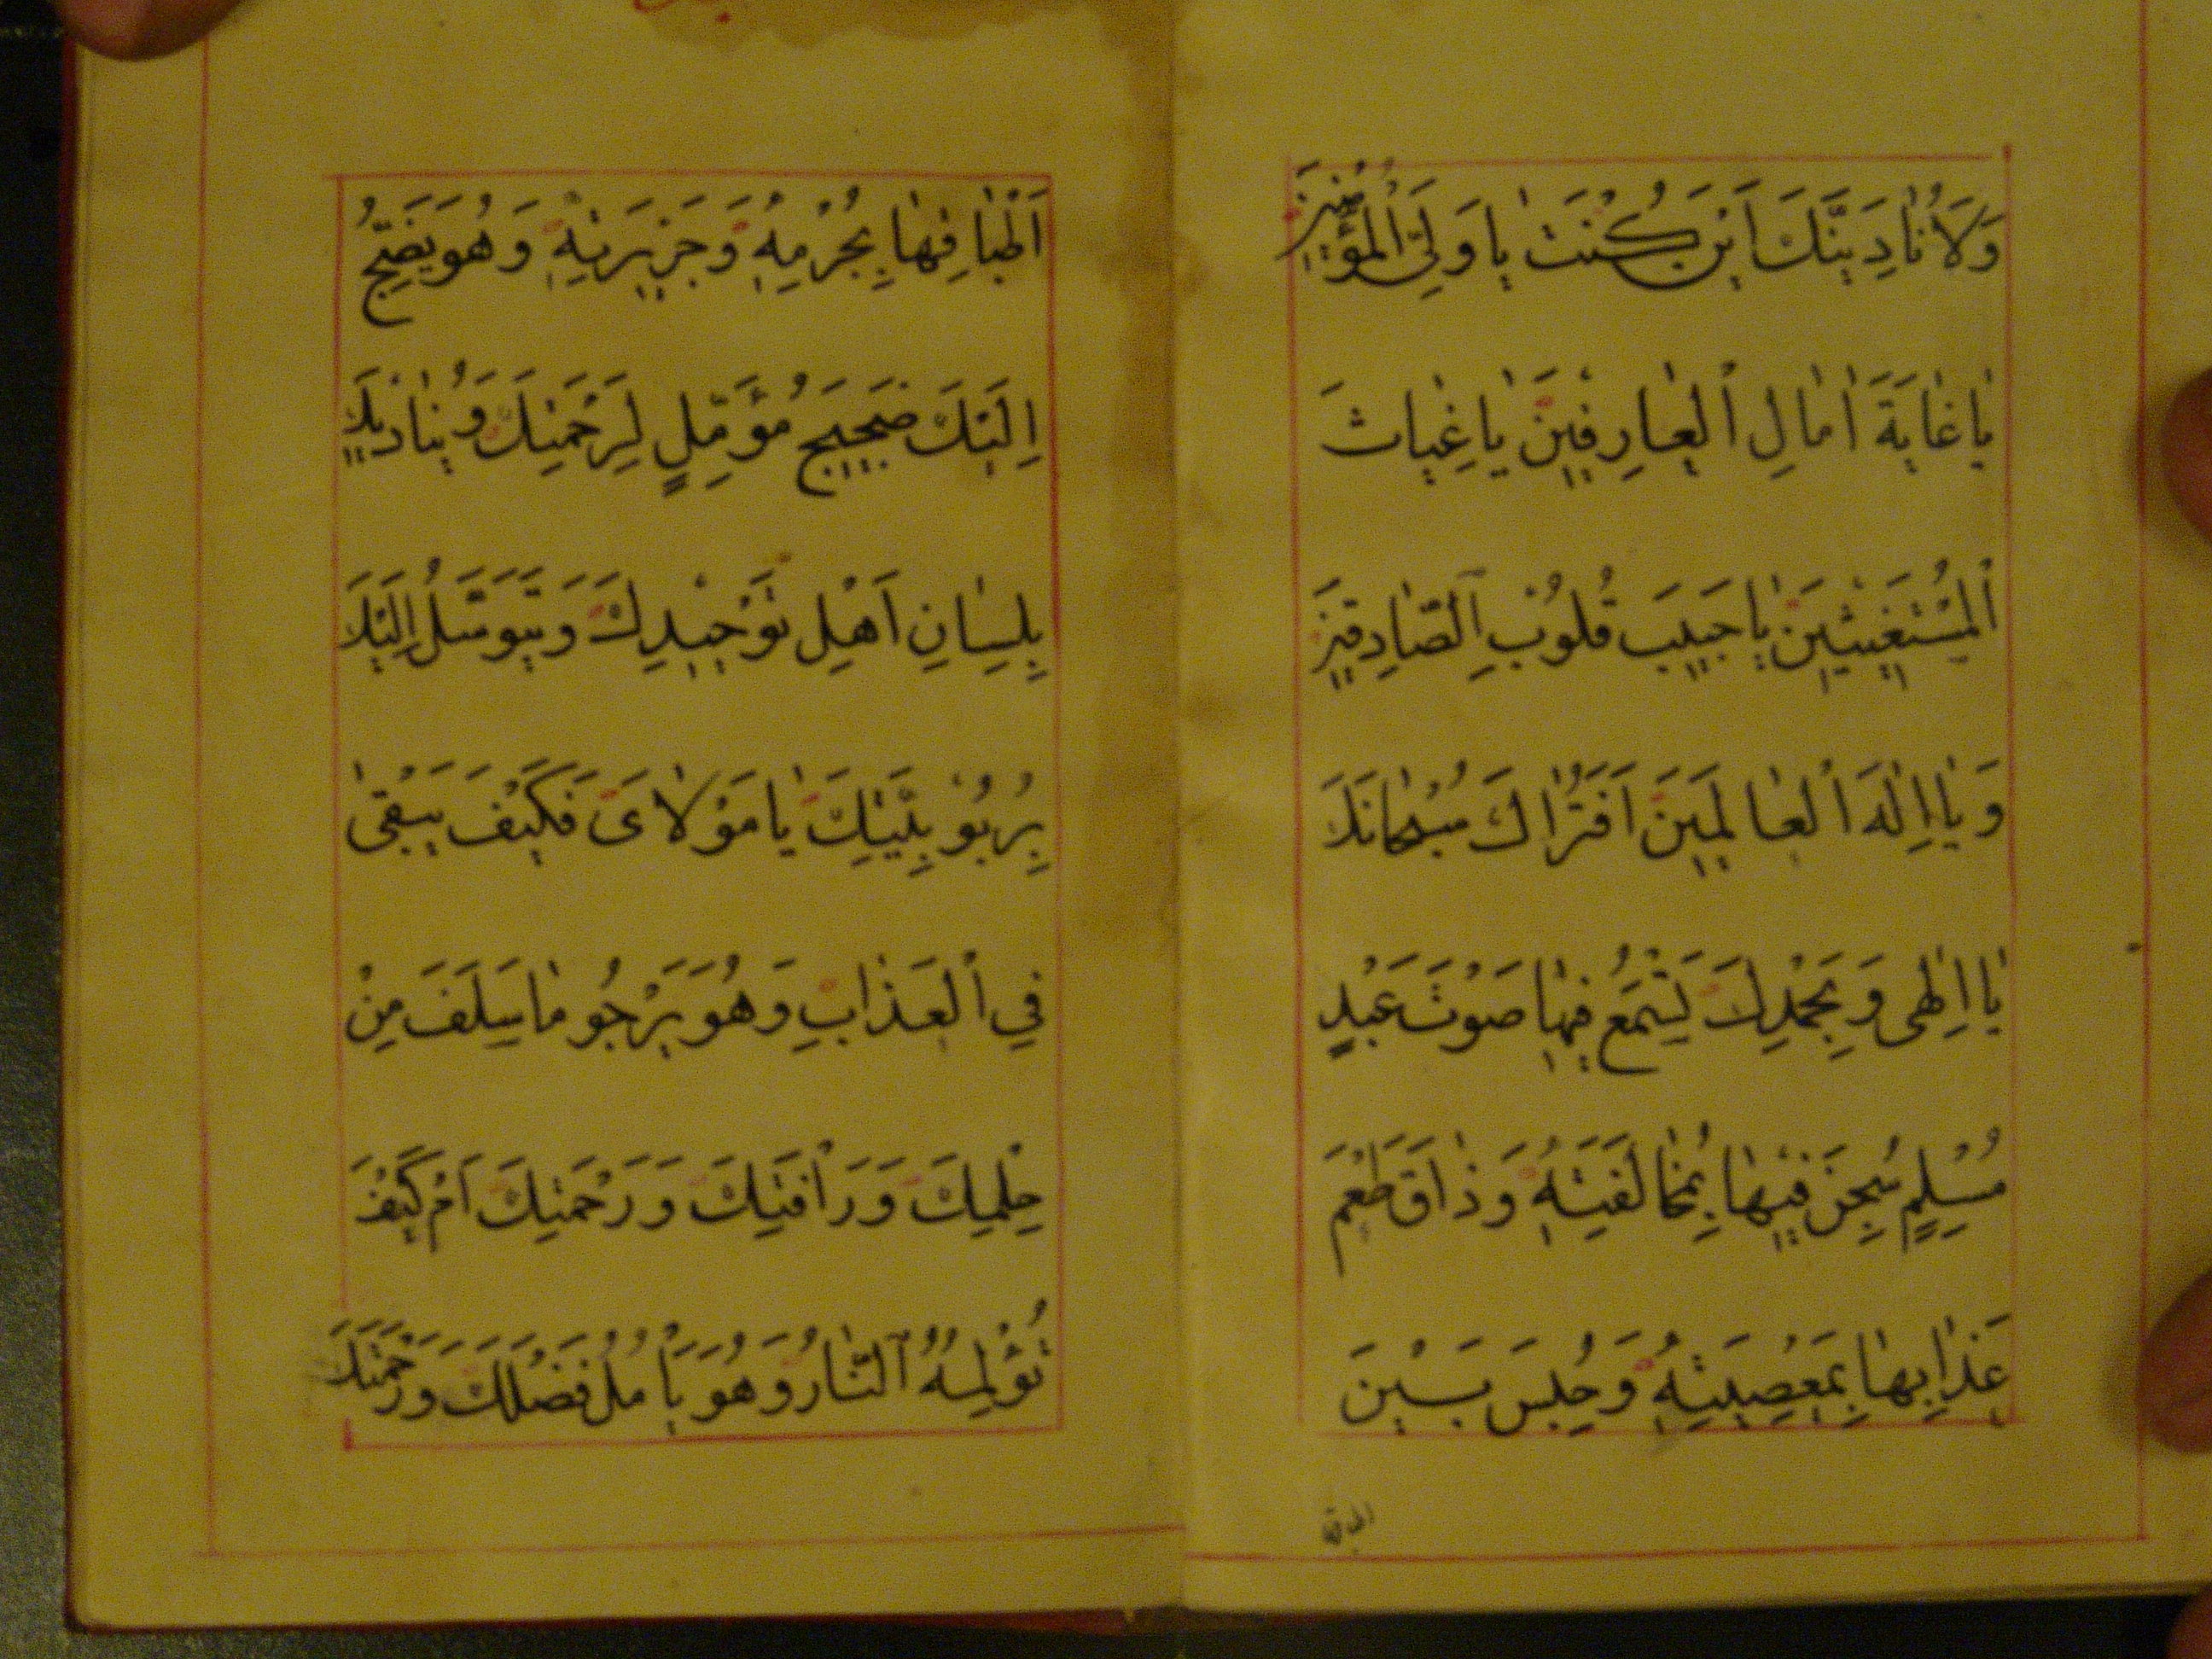 وَلَاُنادِيَنَّكَ اَيْنَ كُنْتَ يا وَلِيَّ الْمُؤْمِنينَ
يا غايَةَ امالِ الْعارِفينَ يا غِياثَ
الْمُسْتَغيثينَ يا حَبيبَ قُلُوبِ الصّادِقينَ
وَيا اِلهَ الْعالَمينَ اَفَتُراكَ سُبْحانَكَ
يا اِلهى وَبِحَمْدِكَ تَسْمَعُ فيها صَوْتَ عَبْدٍ
مُسْلِمٍ سُجِنَ فيها بِمُخالَفَتِهِ وَذاقَ طَعْمَ
عَذابِها بِمَعْصِيَتِهِ وَحُبِسَ بَيْنَ
اَطْباقِها بِجُرْمِهِ وَجَريرَتِهِ وَهُوَ يَضِجُّ
اِلَيْكَ ضَجيجَ مُؤَمِّلٍ لِرَحْمَتِكَ وَيُناديكَ
بِلِسانِ اَهْلِ تَوْحيدِكَ وَيَتَوَسَّلُ اِلَيْكَ
بِرُبُوبِيَّتِكَ يا مَوْلاىَ فَكَيْفَ يَبْقى
فِي الْعَذابِ وَهُوَ يَرْجُو ما سَلَفَ مِنْ
حِلْمِكَ وَرَاْفَتِكَ وَرَحْمَتِكَ اَمْ كَيْفَ
تُؤْلِمُهُ النّارُ وَهُوَ يَاْمُلُ فَضْلَكَ وَرَحْمَتَكَ